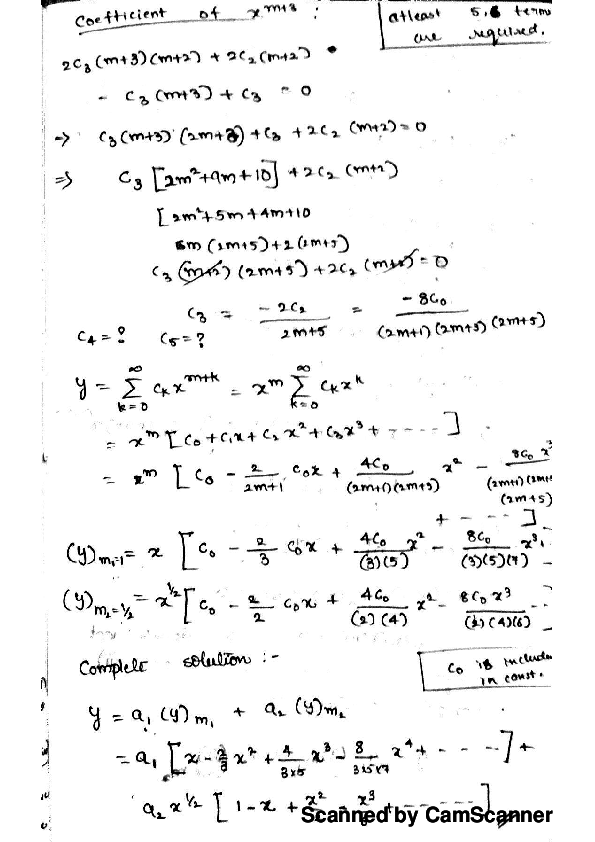 Coefficient of x^{m+3} :
atleast 5,6 terms
are required.
2C₃(m+3)(m+2) + 2C₂(m+2)
- C₃(m+3) + C₃ = 0
→ C₃(m+3)(2m+3) + C₃ + 2C₂(m+2) = 0
⇒ C₃ [2m²+9m+10] + 2C₂(m+2)
[2m²+5m+4m+10
m(2m+5)+2(2m+5)
C₃(m+2)(2m+5) + 2C₂(m+2) = 0
C₃ = -2C₂/(2m+5) = -8C₀/((2m+1)(2m+3)(2m+5))
C₄ = ? C₅ = ?
y = ∑_{k=0}^{∞} Cₖ x^{m+k} = x^m ∑_{k=0}^{∞} Cₖ x^k
= x^m [C₀ + C₁x + C₂x² + C₃x³ + - - - - ]
= x^m [C₀ - 2/(2m+1) C₀x + 4C₀/((2m+1)(2m+3)) x² - 8C₀ x³/((2m+1)(2m+ (2m+5)
+ - - - ]
(y)_{m₁=1} = x [C₀ - 2/3 C₀x + 4C₀/((3)(5)) x² - 8C₀/((3)(5)(7)) x³
(y)_{m₂=1/2} = x^{1/2} [C₀ - 2/2 C₀x + 4C₀/((2)(4)) x² - 8C₀x³/((2)(4)(6))
Complete solution :-
C₀ is include
in const.
y = a₁(y)m₁ + a₂(y)m₂
= a₁ [x - 2/3 x² + 4/(3×5) x³ - 8/(3×5×7) x⁴ + - - - ] +
a₂ x^{1/2} [1 - x + x²/ x³ ]
Scanned by CamScanner